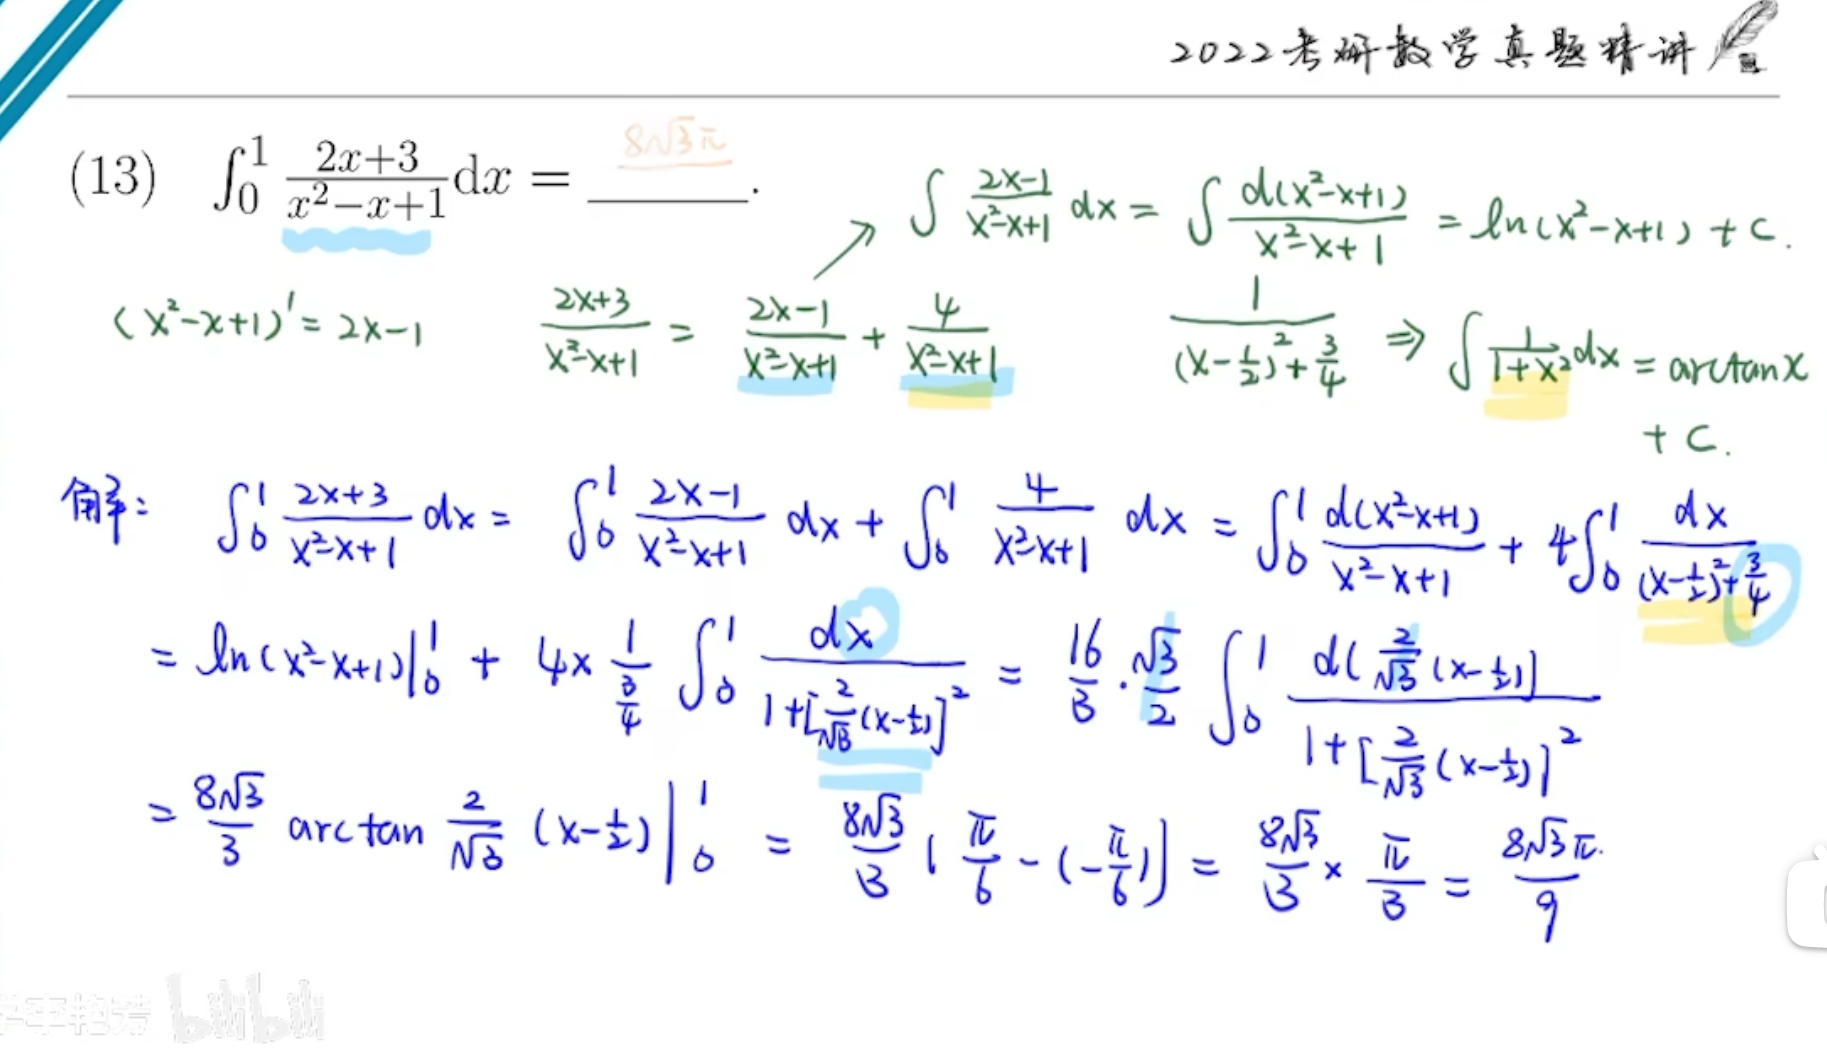 2022考研数学真题精讲
8√3π
(13) ∫₀¹ (2x+3)/(x²−x+1) dx = ______.
∫ (2x-1)/(x²-x+1) dx = ∫ d(x²-x+1)/(x²-x+1) = ln(x²-x+1) + C.
(x²-x+1)' = 2x-1
(2x+3)/(x²-x+1) = (2x-1)/(x²-x+1) + 4/(x²-x+1)
1/((x-1/2)²+3/4) ⇒ ∫ 1/(1+x²) dx = arctanx
+ C.
解: ∫₀¹ (2x+3)/(x²-x+1) dx = ∫₀¹ (2x-1)/(x²-x+1) dx + ∫₀¹ 4/(x²-x+1) dx = ∫₀¹ d(x²-x+1)/(x²-x+1) + 4∫₀¹ dx/((x-1/2)²+3/4)
= ln(x²-x+1)|₀¹ + 4×1/(3/4) ∫₀¹ dx/(1+[2/√3(x-1/2)]²) = 16/3·√3/2 ∫₀¹ d(2/√3(x-1/2))/(1+[2/√3(x-1/2)]²)
= 8√3/3 arctan 2/√3 (x-1/2)|₀¹ = 8√3/3 (π/6-(-π/6)) = 8√3/3 × π/3 = 8√3π/9.
李艳芳 bilibili